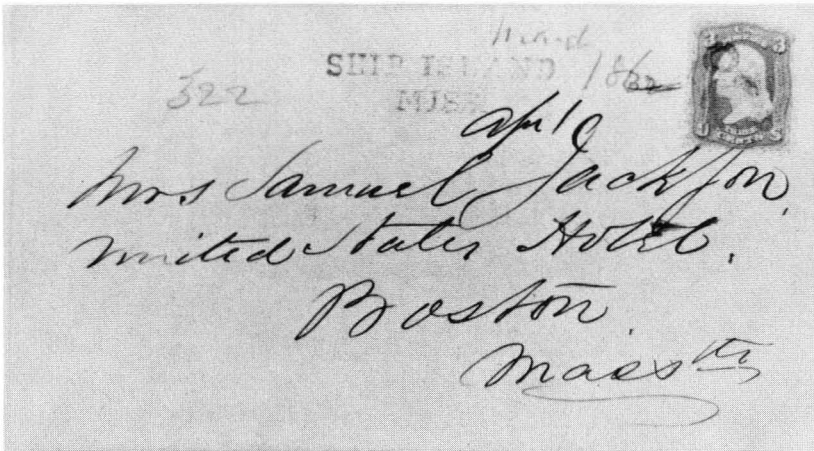 322
SHIP ISLAND
MISS
3 3
Apr 10
Mrs Samuel Jackson,
United States Hotel.
Boston
Mass